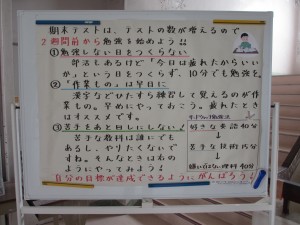 期末テストは、テストの数が増えるので
2週間前から勉強を始めよう!!
①勉強しない日をつくらない
部活もあるけど「今日は疲れたからいい
か」という日をつくらず、10分でも勉強を。
②「作業もの」は早目に
漢字などひたすら練習して覚えるのが作
業もの。早めにやっておこう。疲れたときは
オススメです。
③苦手をあと回しにしない!
苦手な教科は誰にでも
あるし、やりたくないで
すね。そんなときは右の
ようにやってみよう♪
サンドウィッチ勉強法
好きな英語40分
↓
苦手な技術15分
↓
嫌いではない理科40分
自分の目標が達成できるようにがんばろう♪